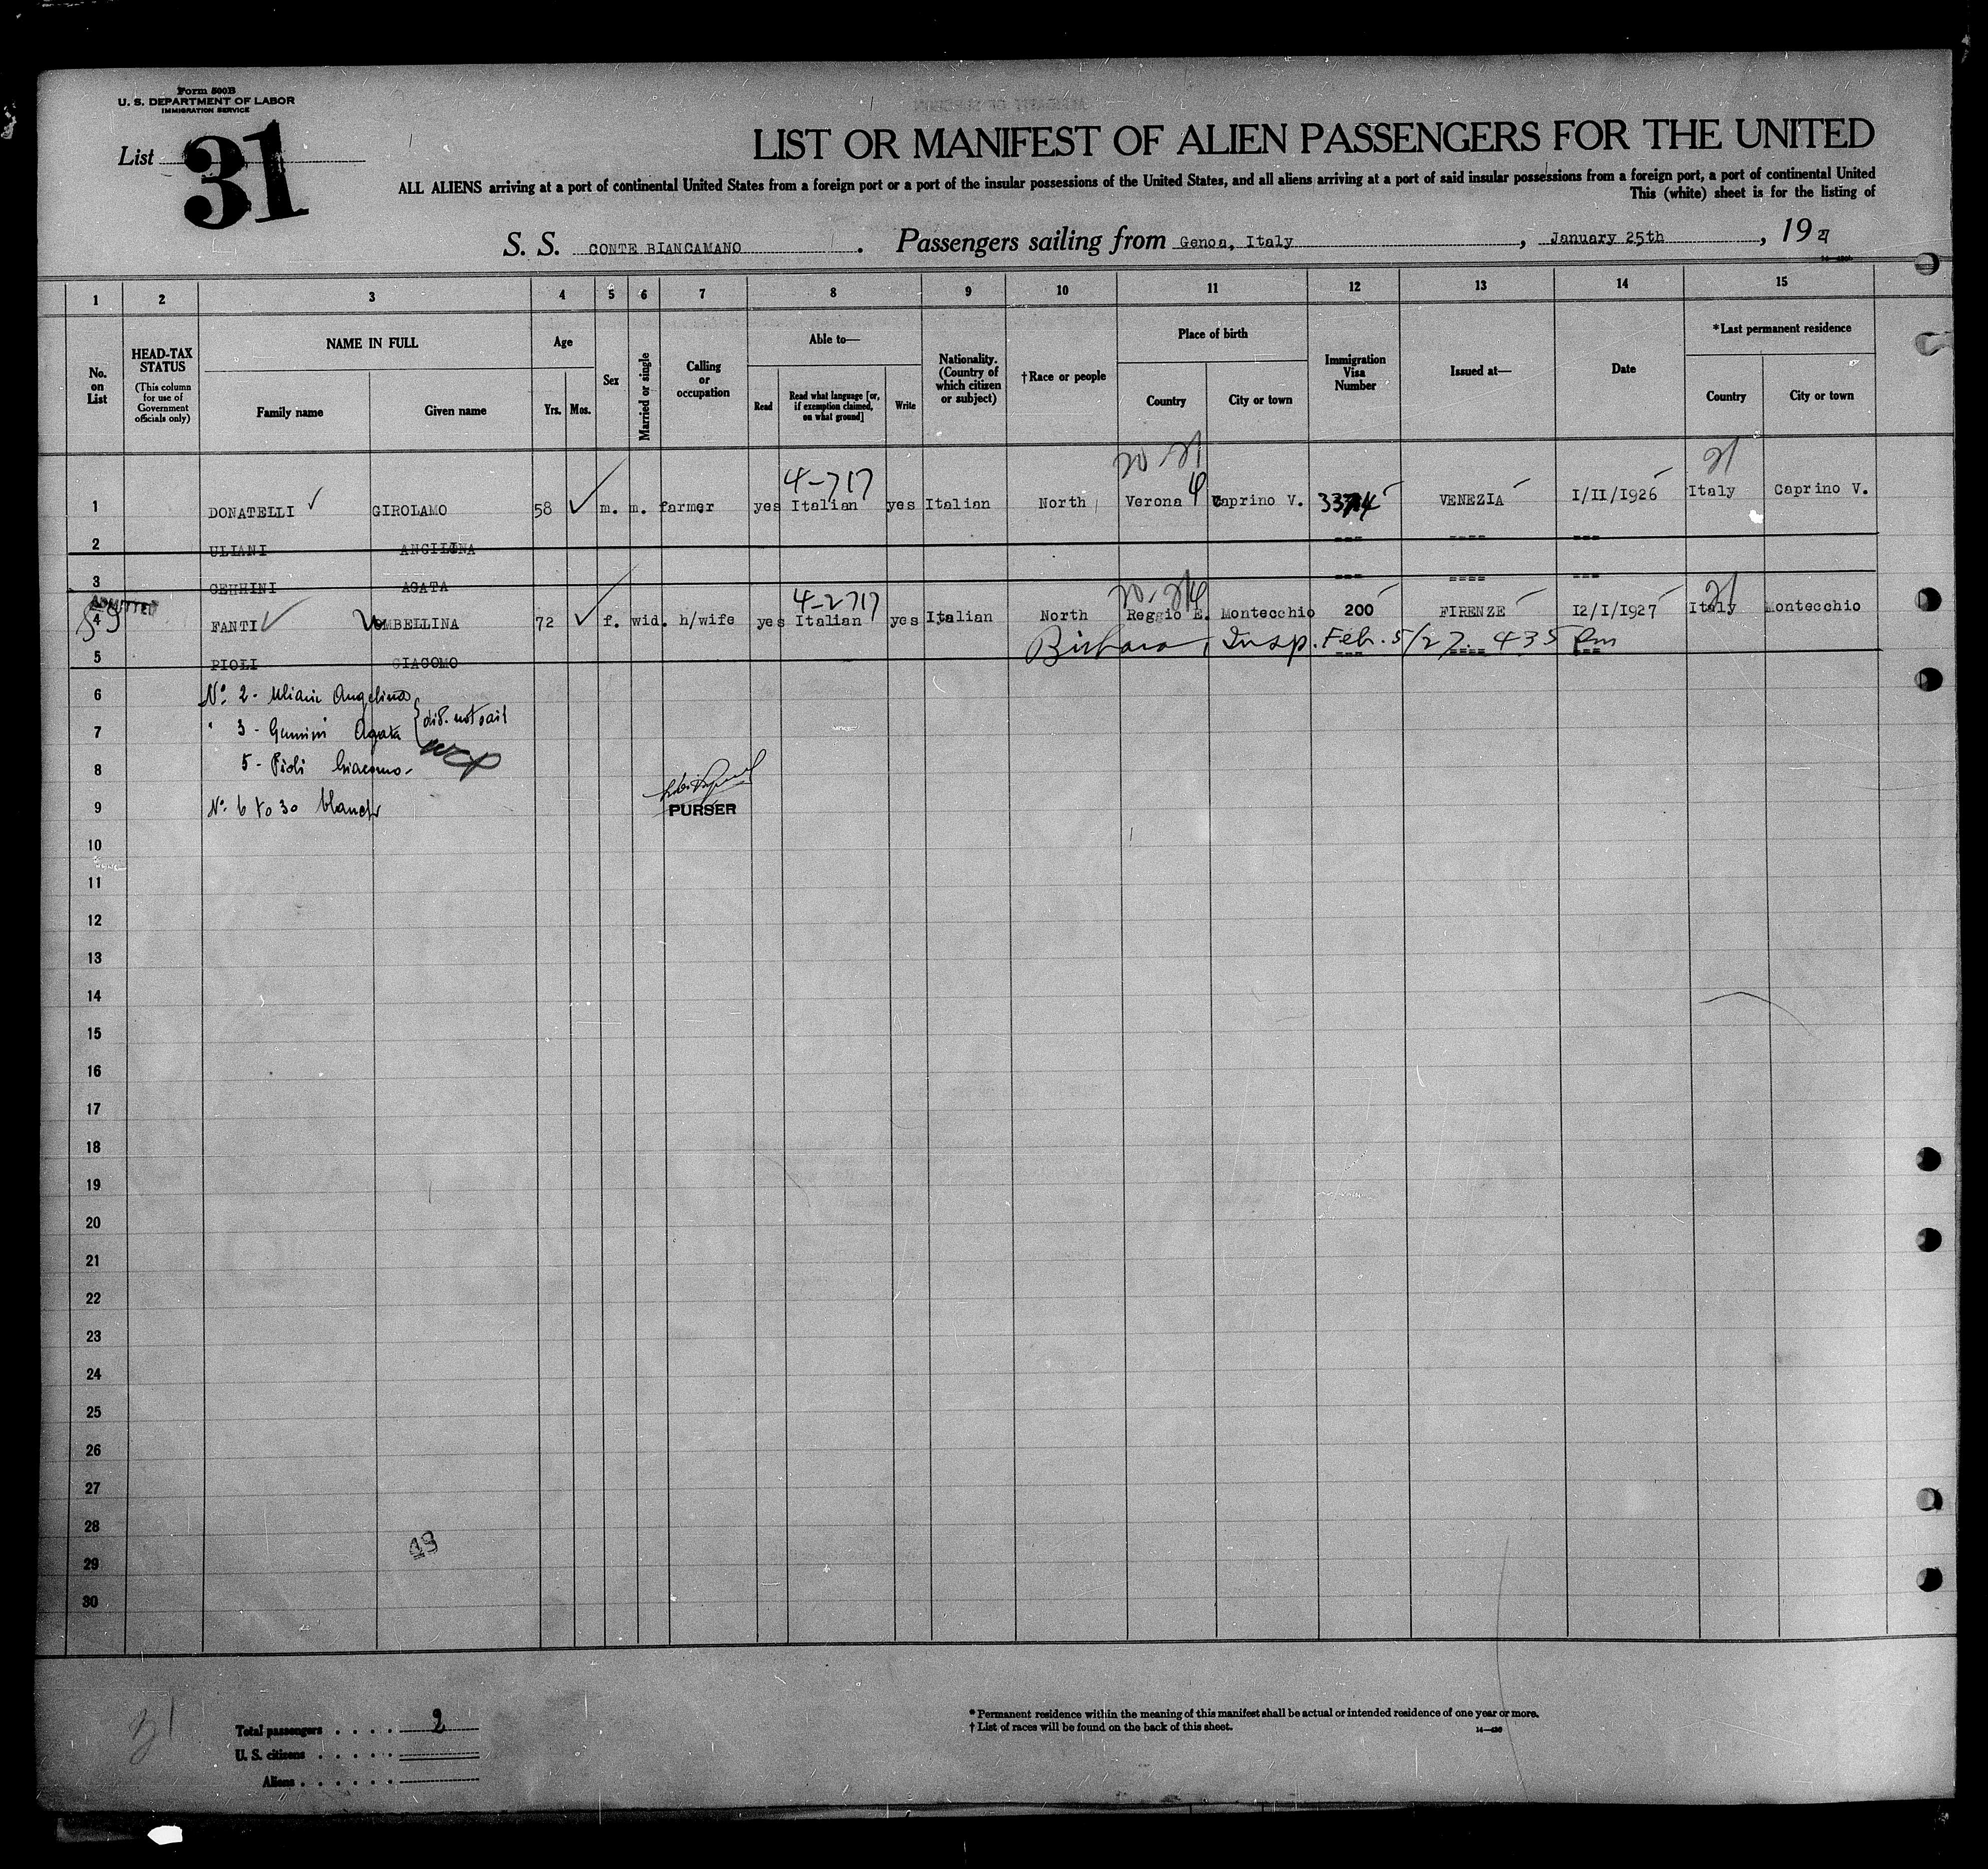 Form 500B
U. S. DEPARTMENT OF LABOR
IMMIGRATION SERVICE
List 31
LIST OR MANIFEST OF ALIEN PASSENGERS FOR THE UNITED
ALL ALIENS arriving at a port of continental United States from a foreign port or a port of the insular possessions of the United States, and all aliens arriving at a port of said insular possessions from a foreign port, a port of continental United
This (white) sheet is for the listing of
S. S. CONTE BIANCAMANO. Passengers sailing from Genoa, Italy, January 25th, 1927
1 2 3 4 5 6 7 8 9 10 11 12 13 14 15
No. on List
HEAD-TAX STATUS (This column for use of Government officials only)
NAME IN FULL
Family name
Given name
Age
Yrs. Mos.
Sex
Married or single
Calling or occupation
Able to—
Read
Read what language [or, if exemption claimed, on what ground]
Write
Nationality. (Country of which citizen or subject)
†Race or people
Place of birth
Country
City or town
Immigration Visa Number
Issued at—
Date
*Last permanent residence
Country
City or town
20-21 21
4-717
1 DONATELLI GIROLAMO 58 m. m. farmer yes Italian yes Italian North Verona Caprino V. VENEZIA 1/11/1926 Italy Caprino V.
2 ULIANI ANGILINA --- ---- ---
3 AGATA --- ---- ---
ADMITTED
4-2717 21
4 FANTI OMBELLINA 72 f. wid. h/wife yes Italian yes Italian North Reggio E. Montecchio 200 FIRENZE 12/1/1927 Italy Montecchio
Insp. Feb. 5/27. 435 Pm
5 PIOLI GIACOMO --- ---- ---
6 No 2 - Uliani Angelina
7 " 3 - Agata did not sail
8 5 - Pioli Giacomo -
9 No 6 to 30 blank
PURSER
10
11
12
13
14
15
16
17
18
19
20
21
22
23
24
25
26
27
28
29
30
48
31
Total passengers . . . . 2
U. S. citizens . . . . .
Aliens . . . . . .
* Permanent residence within the meaning of this manifest shall be actual or intended residence of one year or more.
† List of races will be found on the back of this sheet.
14—430